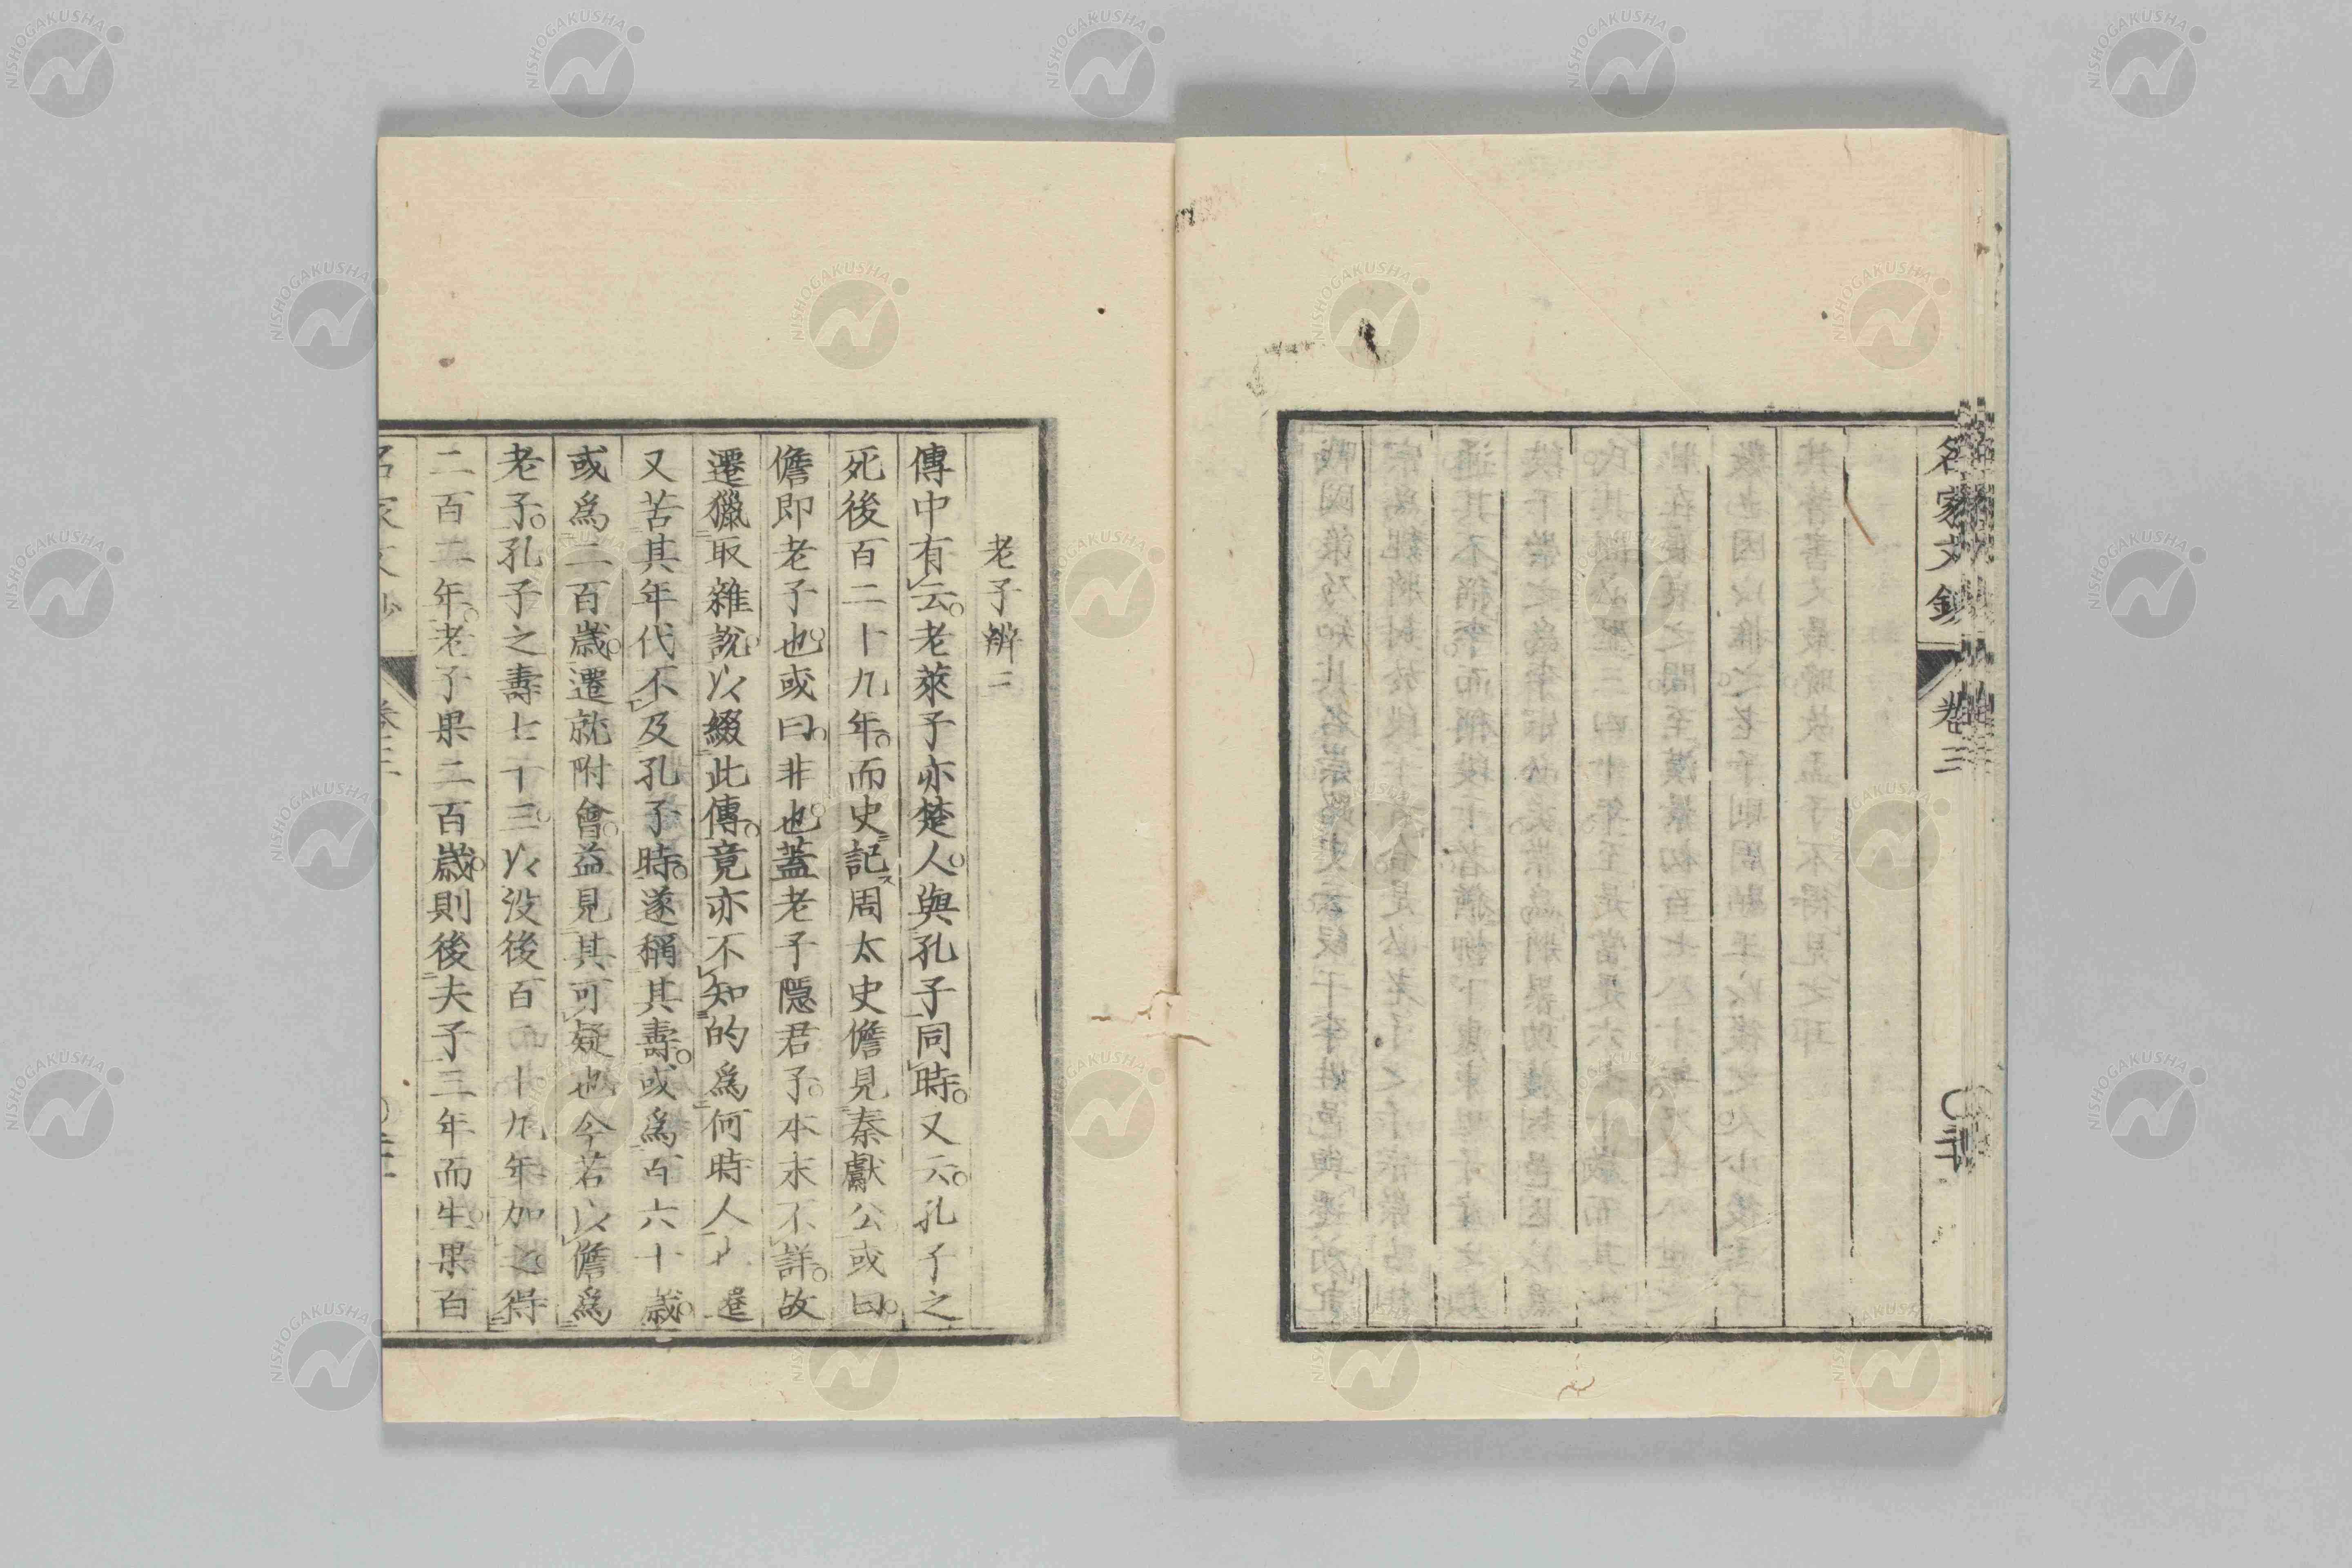 名家文鈔 卷三
老子辨二
傳中有云老萊子亦楚人與孔子同時又云孔子之
死後百二十九年而史記周太史儋見秦獻公或曰
儋即老子也或曰非也蓋老子隱君子本末不詳故
遷獵取雜說以綴此傳竟亦不知的爲何時人 遷
又苦其年代不及孔子時遂稱其壽或爲百六十歲
或爲二百歲遷就附會益見其可疑也今若以儋爲
老子孔子之壽七十三以没後百二十九年加之得
二百二年老子果二百歲則後夫子三年而生果百
NISHOGAKUSHA